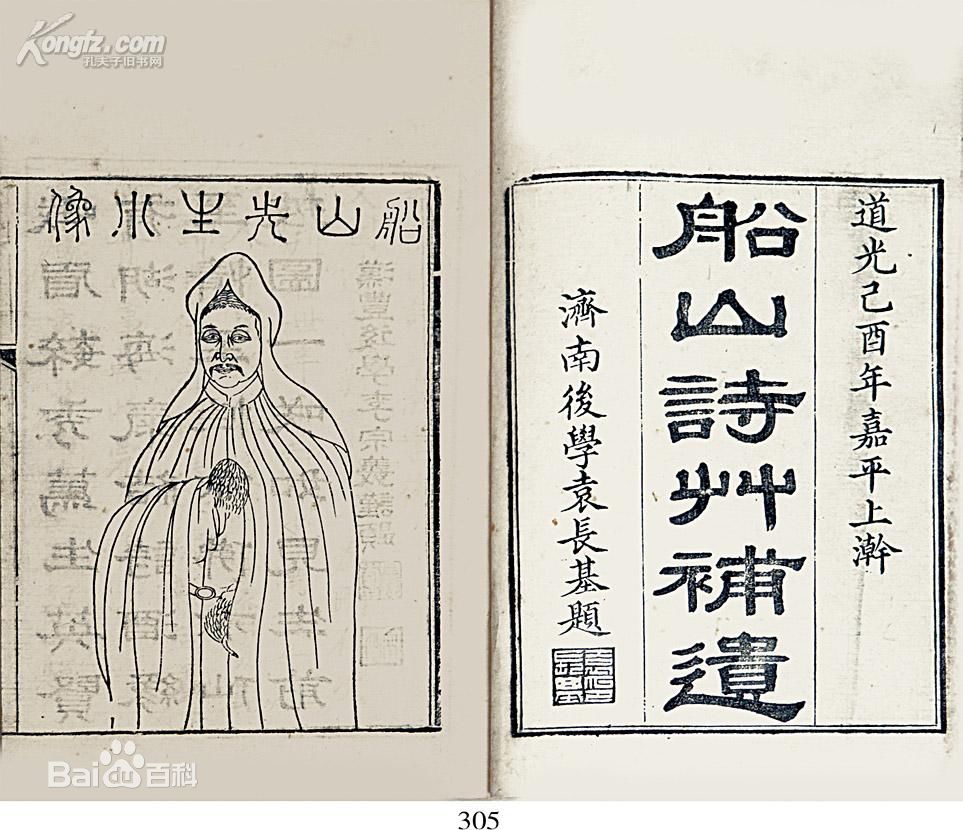 Kongfz.com
孔夫子旧书网
道光己酉年嘉平上澣
船山詩艸補遺
濟南後學袁長基題
船山先生小像
Baidu百科
305